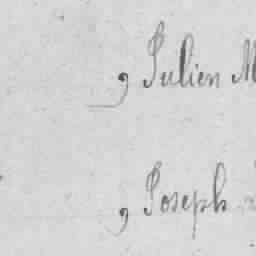 , Julien M
, Joseph